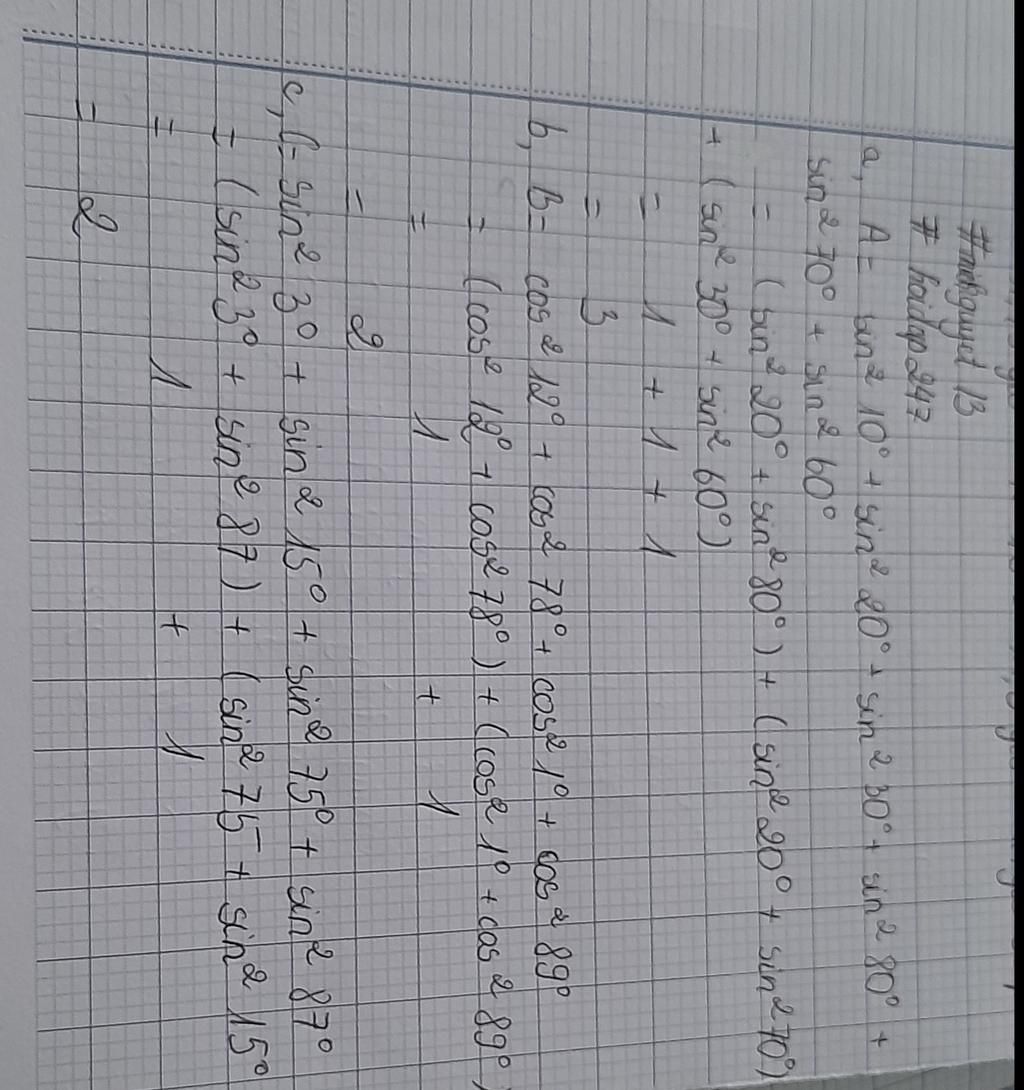 #mavquyet 13
# baidap247
a, A = sin² 10° + sin² 20° + sin² 30° + sin² 80° +
sin² 70° + sin² 60°
= (sin² 20° + sin² 80°) + (sin² 20° + sin² 70°)
+ (sin² 30° + sin² 60°)
= 1 + 1 + 1
= 3
b, B = cos² 12° + cos² 78° + cos² 1° + cos² 89°
= (cos² 12° + cos² 78°) + (cos² 1° + cos² 89°)
= 1 + 1
= 2
c, C = sin² 3° + sin² 15° + sin² 75° + sin² 87°
= (sin² 3° + sin² 87) + (sin² 75 + sin² 15°
= 1 + 1
= 2